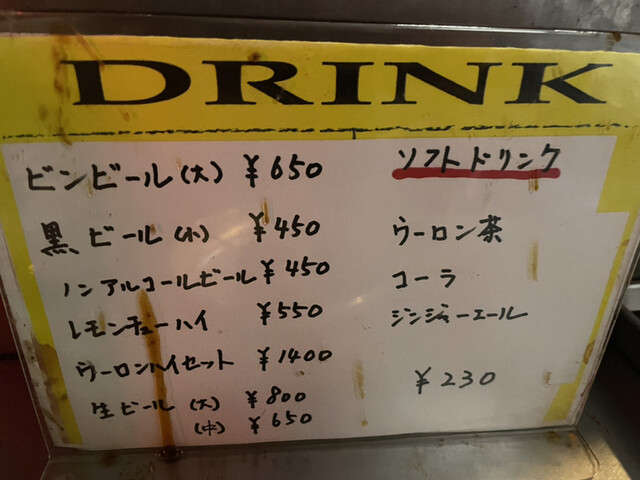 DRINK
ビンビール(大) ¥650
黒ビール(小) ¥450
ノンアルコールビール ¥450
レモンチューハイ ¥550
ウーロンハイセット ¥1400
生ビール(大) ¥800
(中) ¥650
ソフトドリンク
ウーロン茶
コーラ
ジンジャーエール
¥230